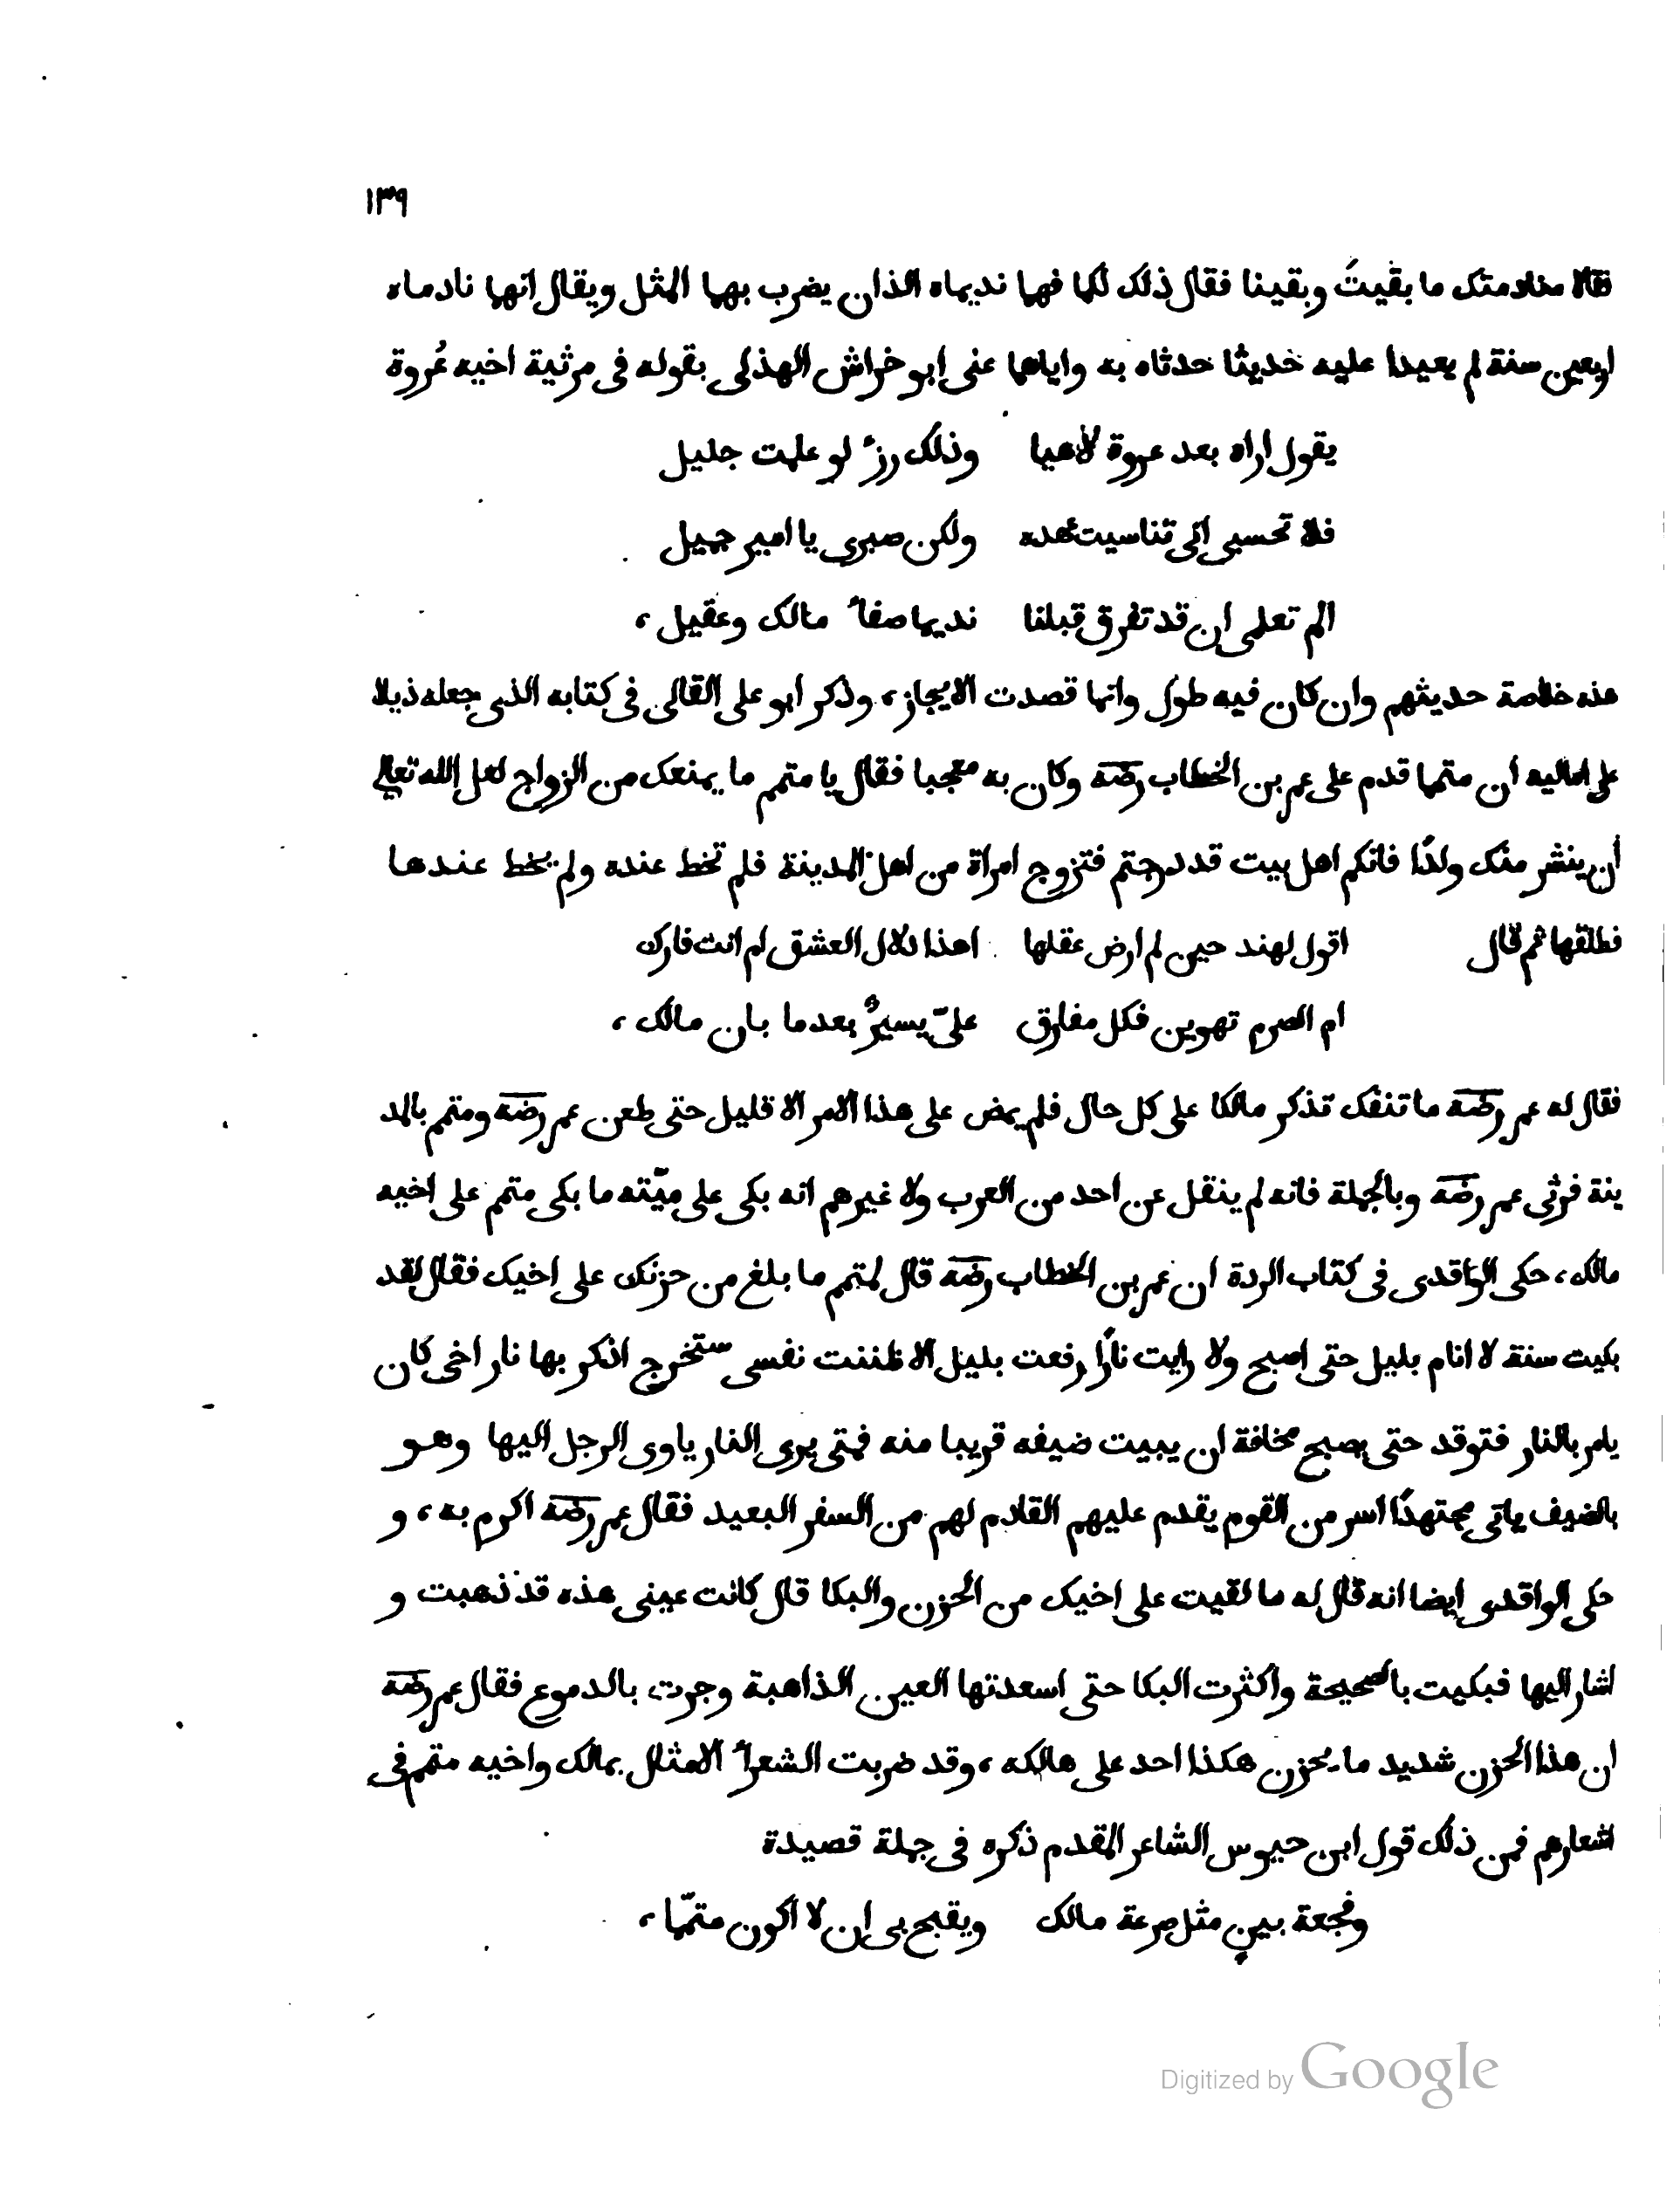 ١٣٩
فقالا منادمتك ما بقيتَ وبقينا فقال ذلك لكما فهما نديماه الذان يضرب بهما المثل ويقال انهما نادماه
اربعين سنة لم يعيدا عليه حديثا حدثاه به واياهما عنى ابو خراش الهذلى بقوله فى مرثية اخيه عُروة
يقول اراه بعد عروة لاهيا وذلك رزء لو علمت جليل
فلا تحسبى انى تناسيت عهده ولكن صبرى يا اميم جميل
الم تعلمى ان قد تفرق قبلنا نديما صفاء مالك وعقيل ،
هذه خلاصة حديثهم وان كان فيه طول وانما قصدت الايجاز ، وذكر ابو على القالى فى كتابه الذى جعله ذيلا
على اماليه ان متمما قدم على عمر بن الخطاب رضه وكان به معجبا فقال يا متمم ما يمنعك من الزواج لعل الله تعالى
أن ينشر منك ولدًا فانكم اهل بيت قد درجتم فتزوج امراة من اهل المدينة فلم تخط عنده ولم يخط عندها
فطلقها ثم قال اقول لهند حين لم ارض عقلها اهذا دلال العشق ام انت فارك
ام الصرم تهوين فكل مفارق علىّ يسيرٌ بعدما بان مالك ،
فقال له عمر رضه ما تنفك تذكر مالكا على كل حال فلم يمض على هذا الامر الا قليل حتى طعن عمر رضه ومتمم بالمد
ينة فرثى عمر رضه وبالجملة فانه لم ينقل عن احد من العرب ولا غيرهم انه بكى على ميّته ما بكى متمم على اخيه
مالك ، حكى الواقدى فى كتاب الردة ان عمر بن الخطاب رضه قال لمتمم ما بلغ من حزنك على اخيك فقال لقد
بكيت سنة لا انام بليل حتى اصبح ولا رايت نارًا رفعت بليل الا ظننت نفسى ستخرج اذكر بها نار اخى كان
يامر بالنار فتوقد حتى يصبح مخافة ان يبيت ضيفه قريبا منه فمتى يرى النار ياوى الرجل اليها وهو
بالضيف ياتى مجتهدًا اسر من القوم يقدم عليهم القادم لهم من السفر البعيد فقال عمر رضه اكرم به ، و
حكى الواقدى ايضا انه قال له ما لقيت على اخيك من الحزن والبكا قال كانت عينى هذه قد ذهبت و
اشار اليها فبكيت بالصحيحة واكثرت البكا حتى اسعدتها العين الذاهبة وجرت بالدموع فقال عمر رضه
ان هذا الحزن شديد ما يحزن هكذا احد على هالكه ، وقد ضربت الشعراء الامثال بمالك واخيه متمم فى
اشعارهم فمن ذلك قول ابن حيوس الشاعر المقدم ذكره فى جملة قصيدة
وفجعة بين مثل صرعة مالك ويقبح بى ان لا اكون متمّما ،
Digitized by Google